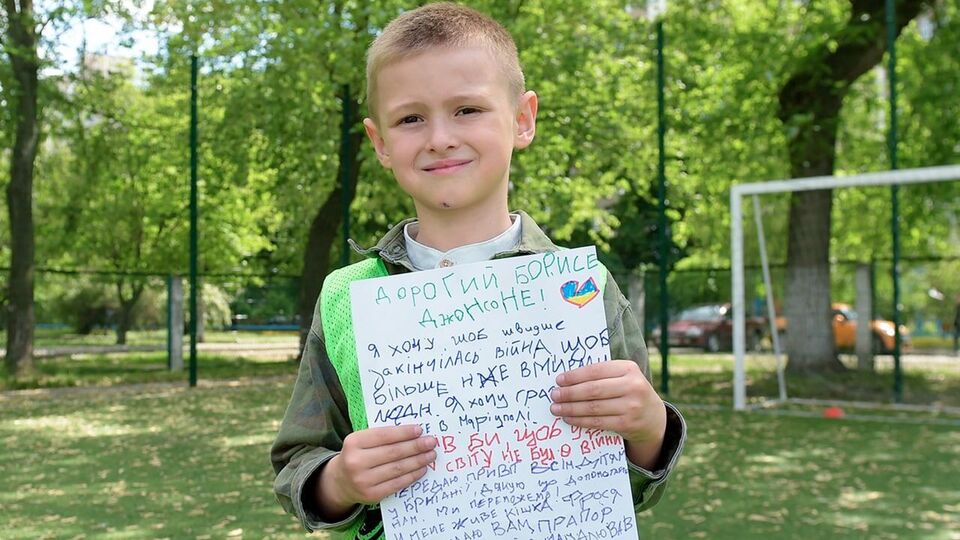 ДОРОГИЙ БОРИСЕ
ДЖОНСОНЕ!
Я ХОЧУ ЩОБ ШВИДШЕ
ЗАКІНЧІЛАСЬ ВІЙНА ЩОБ
БІЛЬШЕ НЕ ВМИРАЛИ
ЛЮДИ. Я ХОЧУ
В МАРІУПОЛІ.
БИ, ЩОБ У
СВІТУ НЕ БУЛО ВІЙНИ
ПЕРЕДАЮ ПРИВІТ ВСІМ ДІТЯМ
У БРИТАНІЇ ДЯКУЮ ДОПОМОГАЄ
НАМ. МИ ПЕРЕМОЖЕМ! ФРОСЯ
МЕНЕ ЖИВЕ КІШКА
ВАМ ПРАПОР